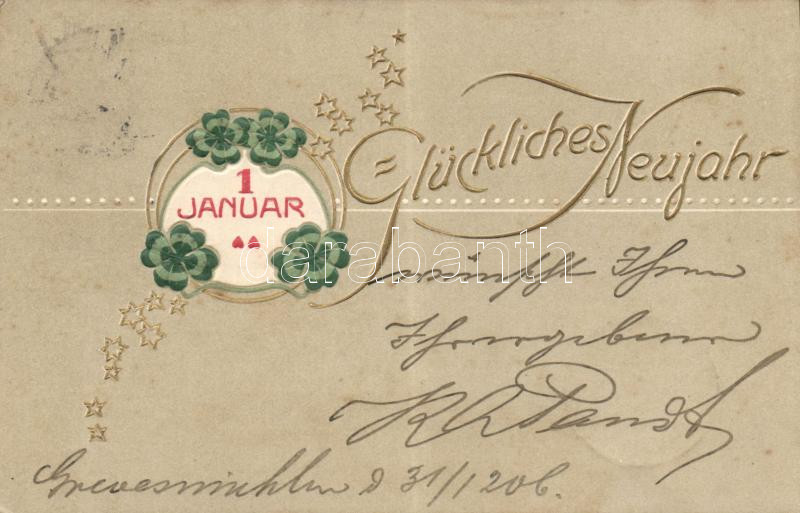 Glückliches Neujahr
1
JANUAR
wünscht Ihnen
Ihr ergebener
Grevesmühlen d 31/12 06.
darabanth.com